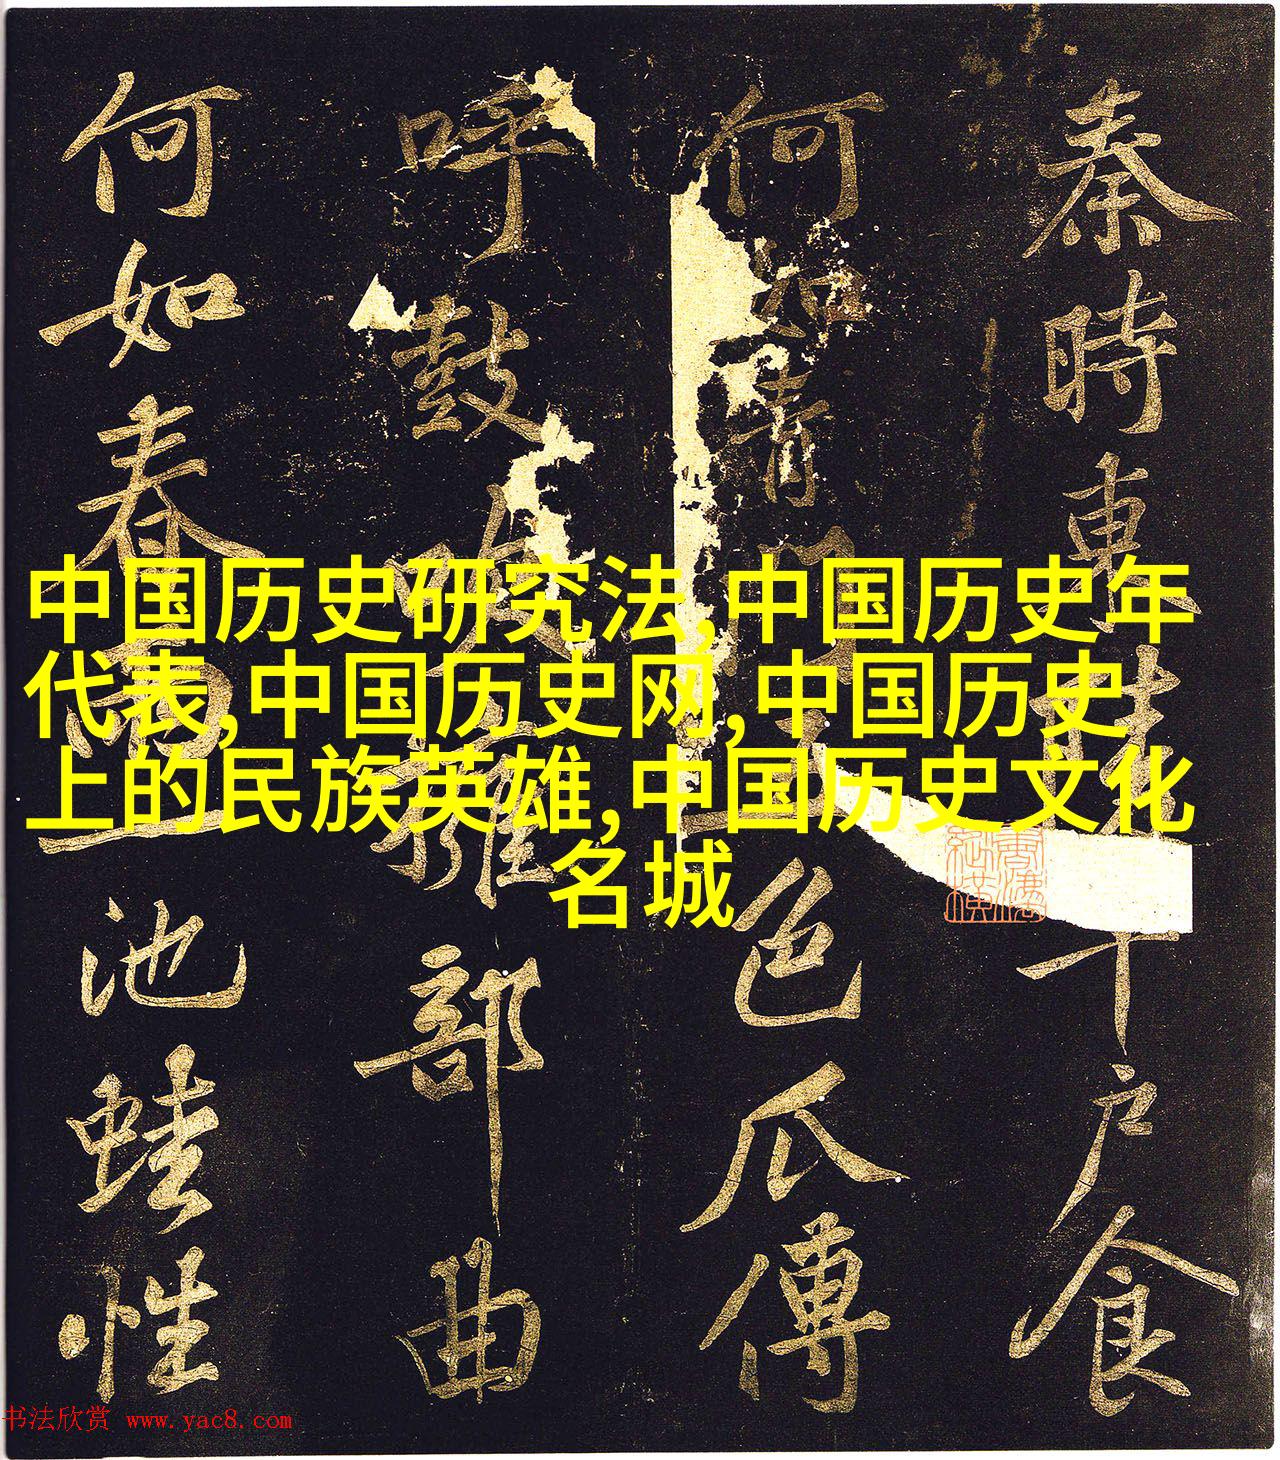 秦時東陵千戶食
何如青門五色瓜傳
呼鼓吹擁部曲
何如春曲池蛙性
中国历史研究法,中国历史年
代表,中国历史网,中国历史
上的民族英雄,中国历史文化
名城
书法欣赏 www.yac8.com